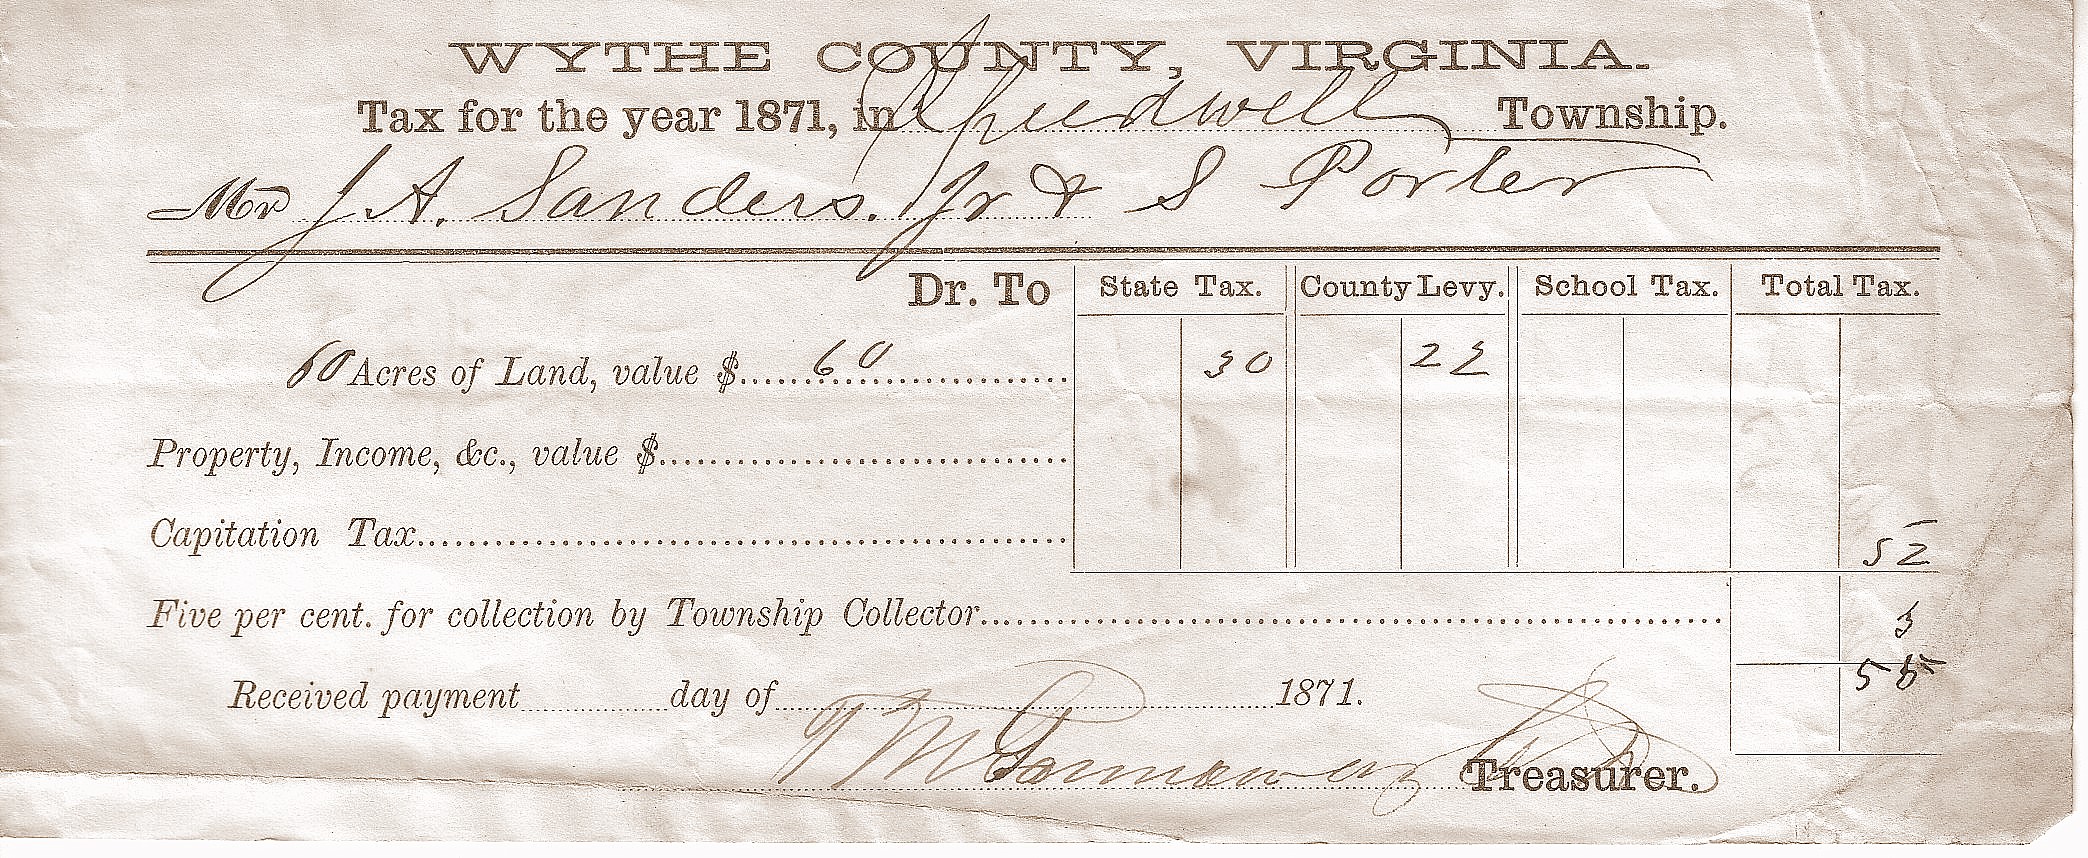 WYTHE COUNTY, VIRGINIA.
Tax for the year 1871, in Speedwell Township.
Mr J A. Sanders. Jr & S Porter
Dr. To State Tax. County Levy. School Tax. Total Tax.
60 Acres of Land, value $ 60 30 22
Property, Income, &c., value $
Capitation Tax 52
Five per cent. for collection by Township Collector 3
55
Received payment day of 1871.
Treasurer.